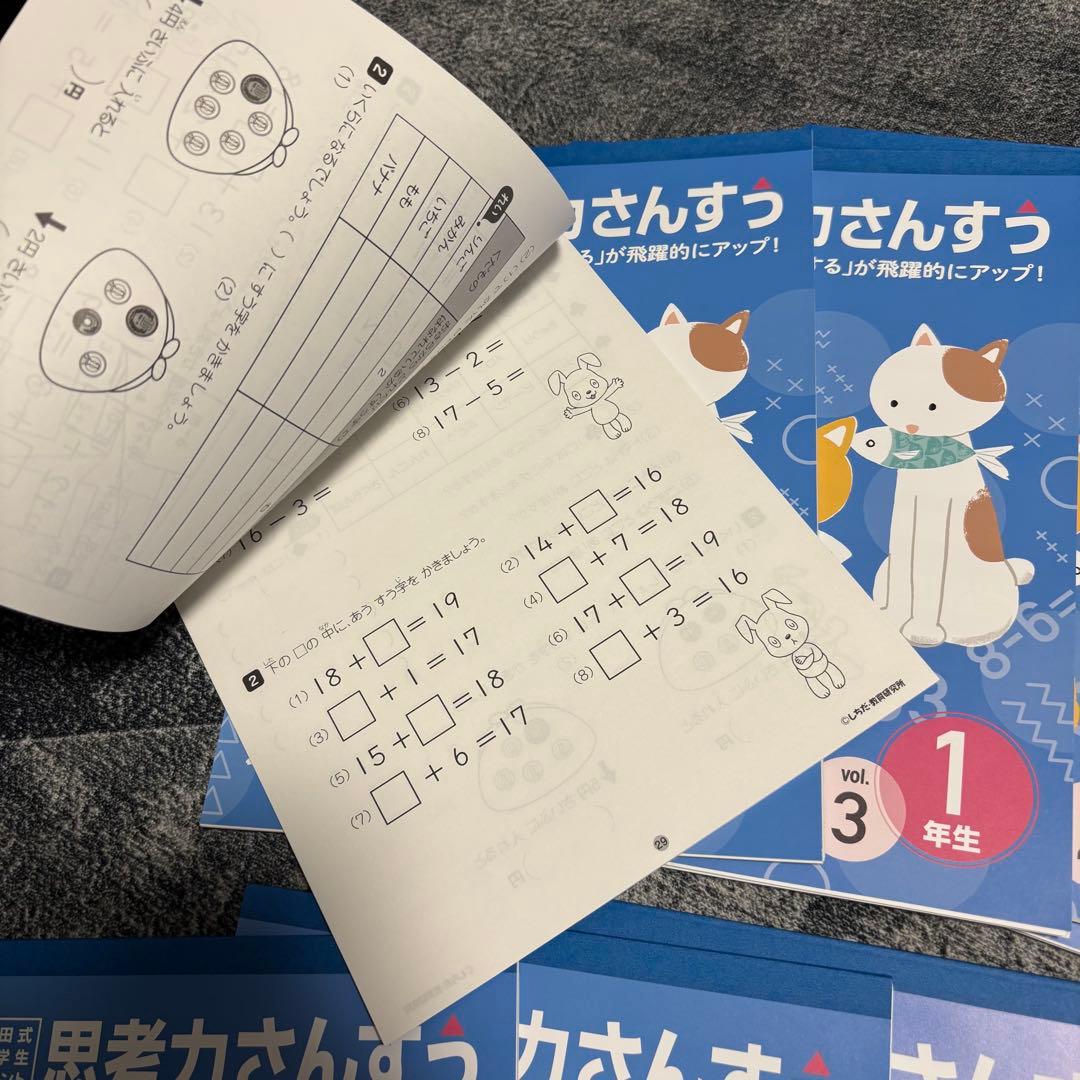 4円 さいふに 入れると
)円
2円 さいふに
2 いくらになるでしょう。( )に すう字を かきましょう。
(1)
(2)
れい
くだもの
りんご
みかん
いちご
もも
バナナ
(6) 13 − 2 =
(8) 17 − 5 =
16 − 3 =
2 下の □の 中に、あう すう字を かきましょう。
(1) 18 + □ = 19
(2) 14 + □ = 16
(3) □ + 1 = 17
(4) □ + 7 = 18
(5) 15 + □ = 18
(6) 17 + □ = 19
(7) □ + 6 = 17
(8) □ + 3 = 16
©しちだ・教育研究所
29
力さんすう
る」が飛躍的にアップ!
力さんすう
する」が飛躍的にアップ!
vol.
3
1
年生
田式
学生
ント
思考力さんすう
力さんすう